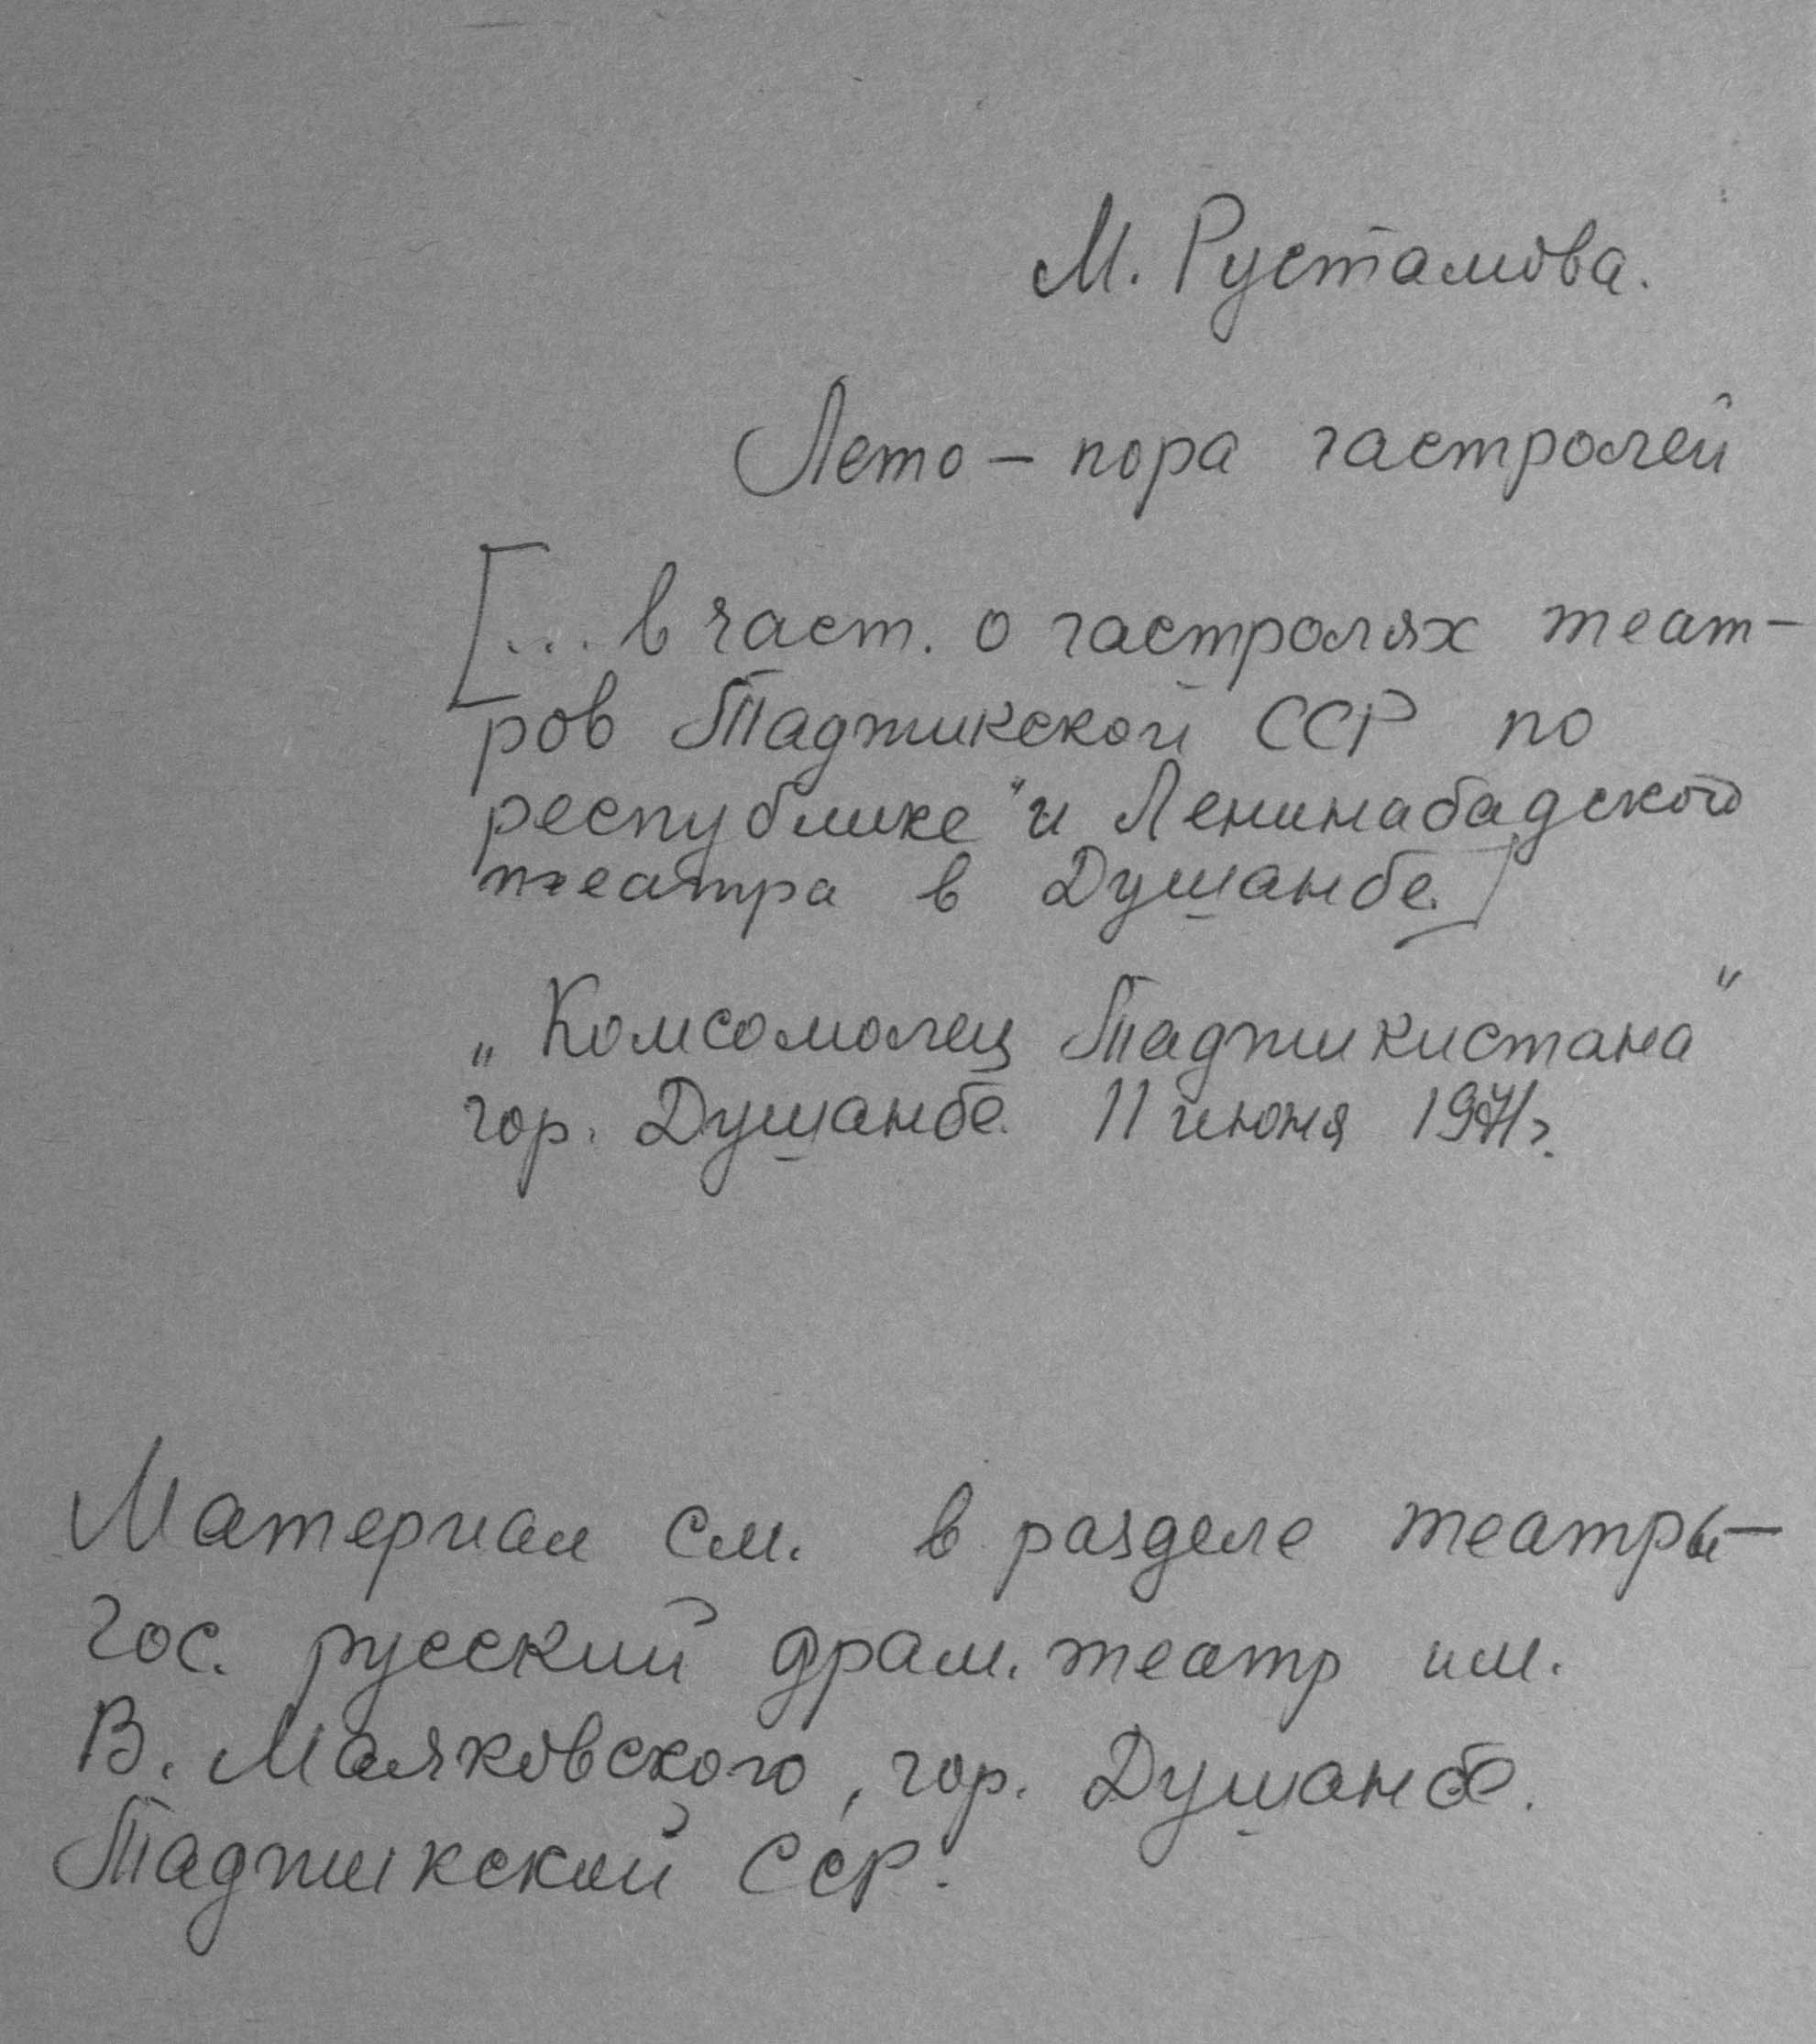 М. Рустамова.
Лето – пора гастролей
[... в част. о гастролях теат-
ров Таджикской ССР по
республике и Ленинабадского
театра в Душанбе.]
„Комсомолец Таджикистана"
гор. Душанбе. 11 июня 1971г.
Материал см. в разделе театры-
гос. русский драм. театр им.
В. Маяковского, гор. Душанбе.
Таджикской ССР.